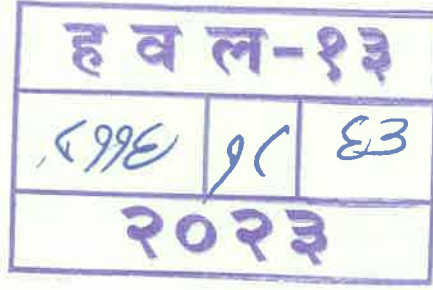 ह व ल-१३
८११६ १८ ६३
२०२३